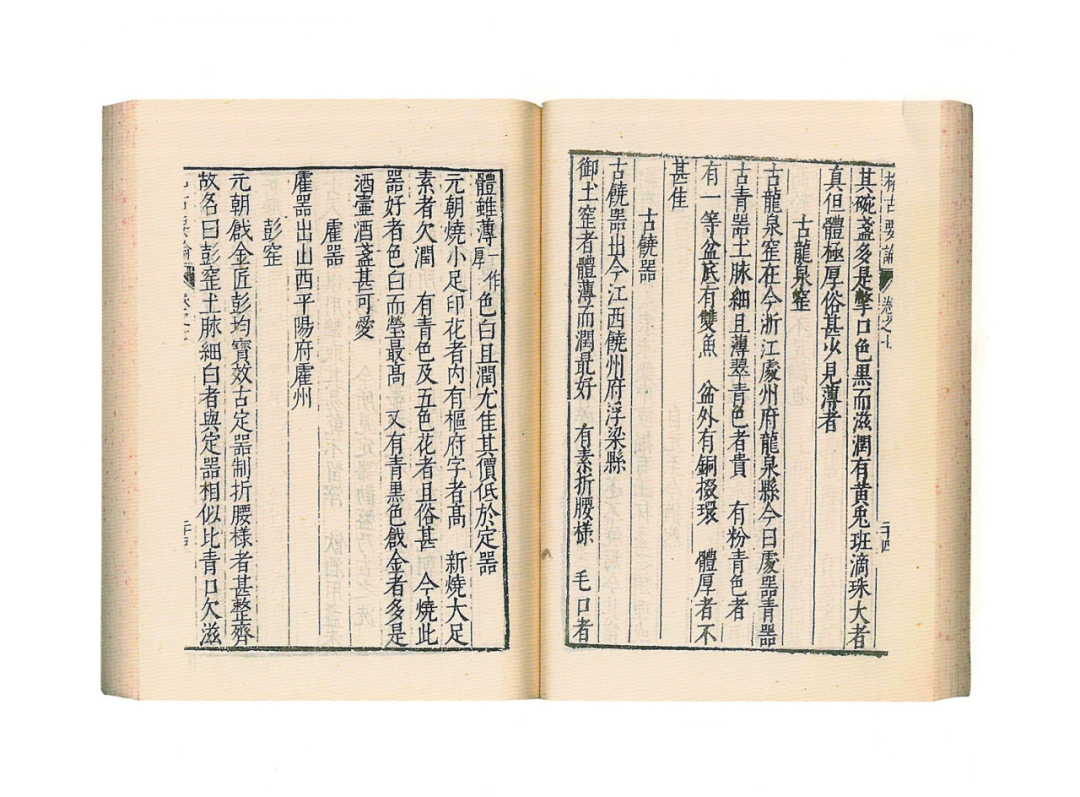 格古要論 卷之七 二十四
其碗盞多是撆口色黑而滋潤有黃兎班滴珠大者
真但體極厚俗甚少見薄者
古龍泉窑
古龍泉窑在今浙江處州府龍泉縣今曰處器青器
古青器土脉細且薄翠青色者貴 有粉青色者
有一等盆底有雙魚 盆外有銅掇環 體厚者不
甚佳
古饒器
古饒器出今江西饒州府浮梁縣
御土窑者體薄而潤最好 有素折腰様 毛口者
體雖薄一作厚色白且潤尤佳其價低於定器
元朝燒小足印花者內有樞府字者高 新燒大足
素者欠潤 有青色及五色花者且俗甚 今燒此
器好者色白而瑩最高 又有青黑色戧金者多是
酒壷酒盞甚可愛
霍器
霍器出山西平陽府霍州
彭窑
元朝戧金匠彭均寶效古定器制折腰様者甚整齊
故名曰彭窑土脉細白者與定器相似比青口欠滋